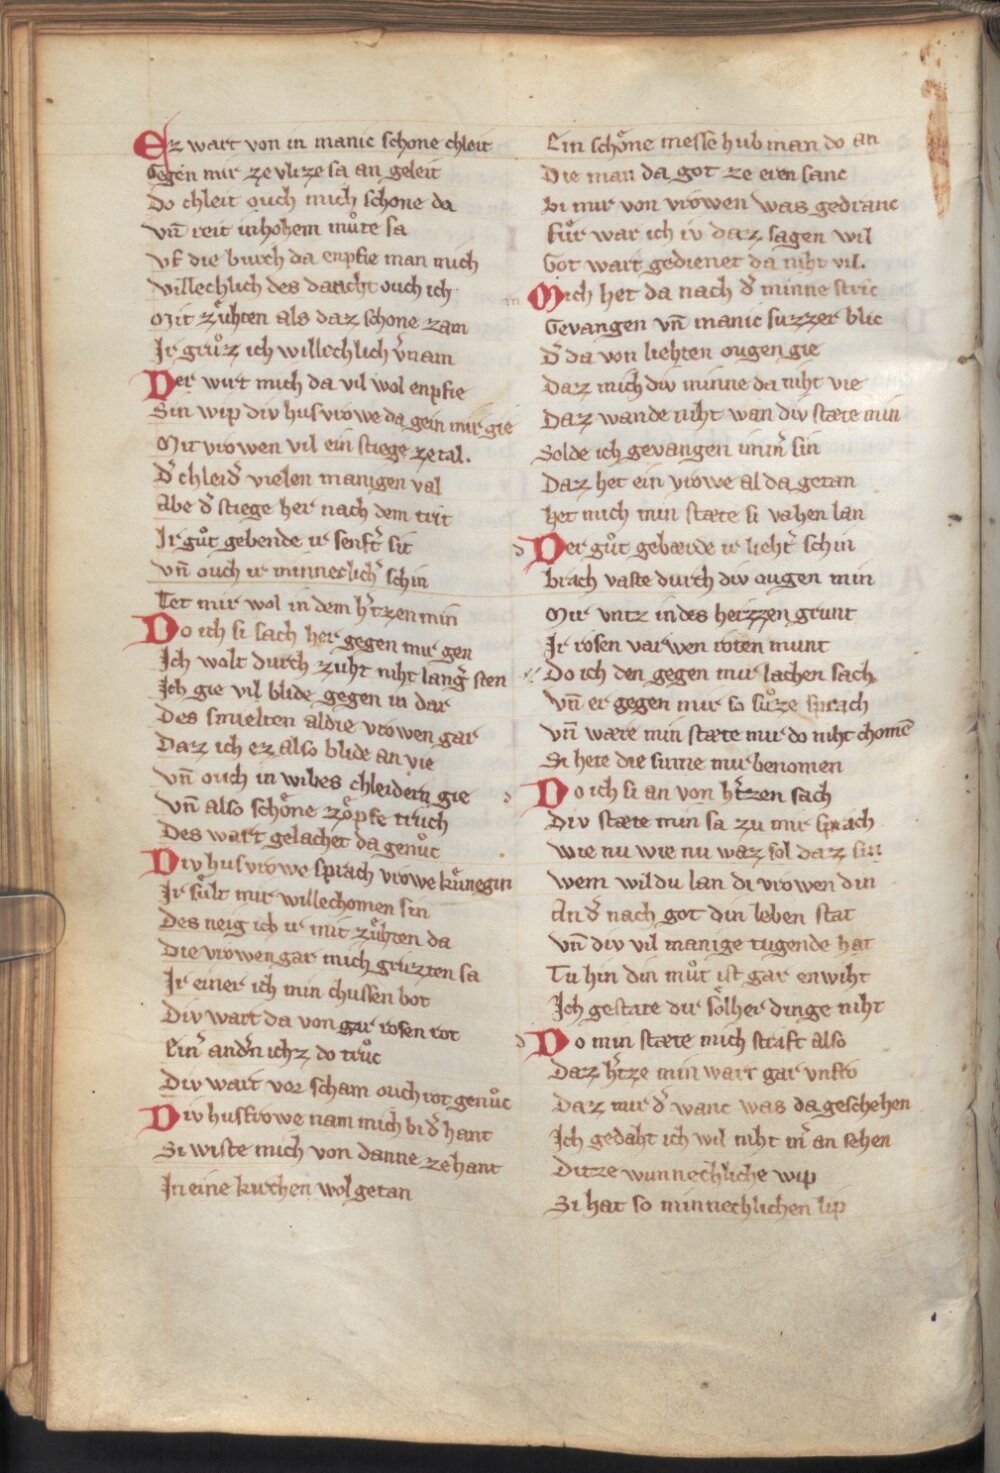 Ez wart von in manic schone chleit
Gegen mir ze vlize sa an geleit
Do chleit ouch mich schone da
vn̄ reit in hohem můte sa
vf die burch da enpfie man mich
willechlich des dancht ouch ich
Mit zuͤhten als daz schone zam
Ir grůz ich willechlich v̓nam
Der wirt mich da vil wol enpfie
Sin wip div husvrowe da gein mir gie
Mit vrowen vil ein stiege ze tal.
D̓ chleid̓ vielen manigen val
Abe d̓ stiege her nach dem trit
Ir gůt gebende ir senft̓ sit
vn̄ ouch ir minneclich̓ schin
Tet mir wol in dem h̓tzen min
Do ich si sach her gegen mir gen
Ich wolt durch zuht niht lang̓ sten
Ich gie vil blide gegen in dar
Des smielten al die vrowen gar
Daz ich ez also blide an vie
vn̄ ouch in wibes chleidern gie
vn̄ also schoͤne zoͤpfe truch
Des wart gelachet da genůc
Div husvrowe sprach vrowe kuͤnegin
Ir suͤlt mir willechomen sin
Des neig ich ir mit zuͤhten da
Die vrowen gar mich gruzten sa
Ir einer ich min chussen bot
Div wart da von gar rosen rot
Ein̓ and̓n ichz do trůc
Div wart vor scham ouch rot genůc
Div husvrowe nam mich bi d̓ hant
Si wiste mich von danne zehant
In eine kirchen wol getan
Ein schoͤne messe hub man do an
Die man da got ze eren sanc
bi mir von vrowen was gedranc
Fuͤr war ich iv daz sagen wil
Got wart gedienet da niht vil.
m Mich het da nach d̓ minne stric
Gevangen vn̄ manic suzzer blic
D̓ da von liehten ougen gie
Daz mich div minne da niht vie
Daz wande niht wan div stæte min
Solde ich gevangen imm̓ sin
Daz het ein vrowe al da getan
het mich min stæte si vahen lan
d Der gůt gebærde ir lieht̓ schin
brach vaste durch div ougen min
Mir vntz in des herzzen grunt
Ir rosen varwen roten munt
Do ich den gegen mir lachen sach
vn̄ er gegen mir so sůze sprach
vn̄ wære min stæte mir do niht chomē
Si hete die sinne mir benomen
d Do ich si an von h̓tzen sach
Div stæte min sa zu mir sprach
wie nu wie nu waz sol daz sin
wem wildu lan di vrowen din
An d̓ nach got din leben stat
vn̄ div vil manige tugende hat
Tu hin din můt ist gar enwiht
Ich gestate dir soͤlher dinge niht
d Do min stæte mich straft also
Daz h̓tze min wart gar vnfro
Daz mir d̓ wanc was da geschehen
Ich gedaht ich wil niht m̓ an sehen
Ditze wunnechliche wip
Si hat so minnechlichen lip